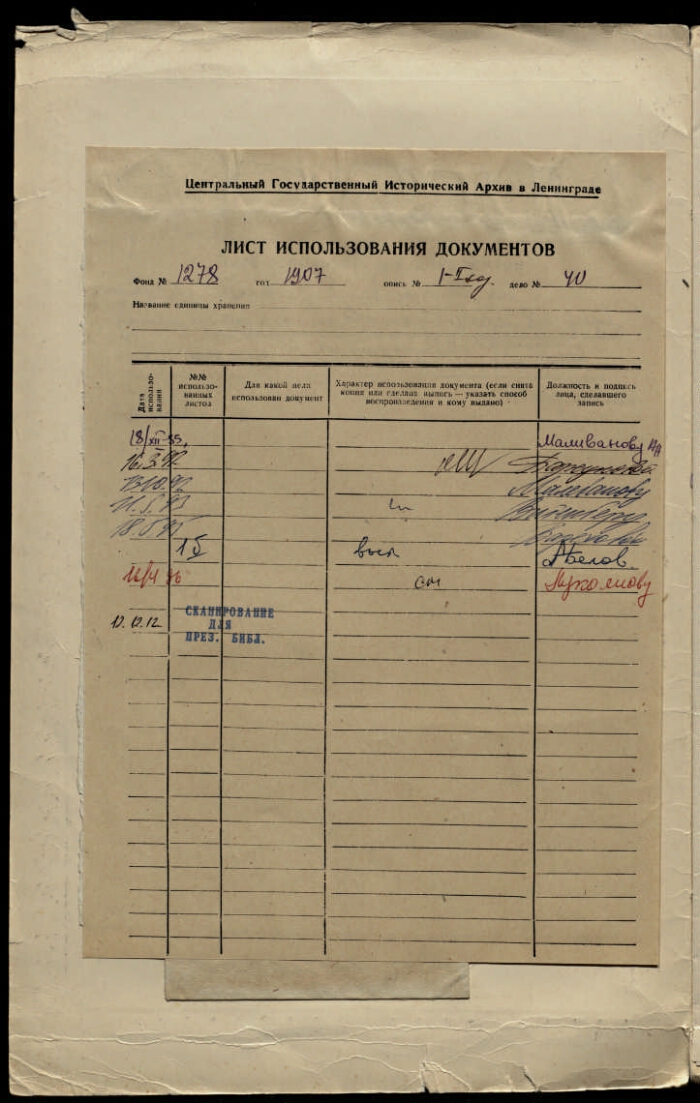 Центральный Государственный Исторический Архив в Ленинграде
ЛИСТ ИСПОЛЬЗОВАНИЯ ДОКУМЕНТОВ
Фонд № 1278 год 1907 опись № 1 дело № 40
Название единицы хранения
Дата использования
№№ использованных листов
Для какой цели использован документ
Характер использования документа (если снята копия или сделана выпись — указать способ воспроизведения и кому выдано)
Должность и подпись лица, сделавшего запись
18/XII-85, Маливанову
16.3.92
13.10.92 Маливанову
11.5.93
18.5.95
15 Белов.
96 см
12.12 СКАНИРОВАНИЕ
ДЛЯ
ПРЕЗ. БИБЛ.